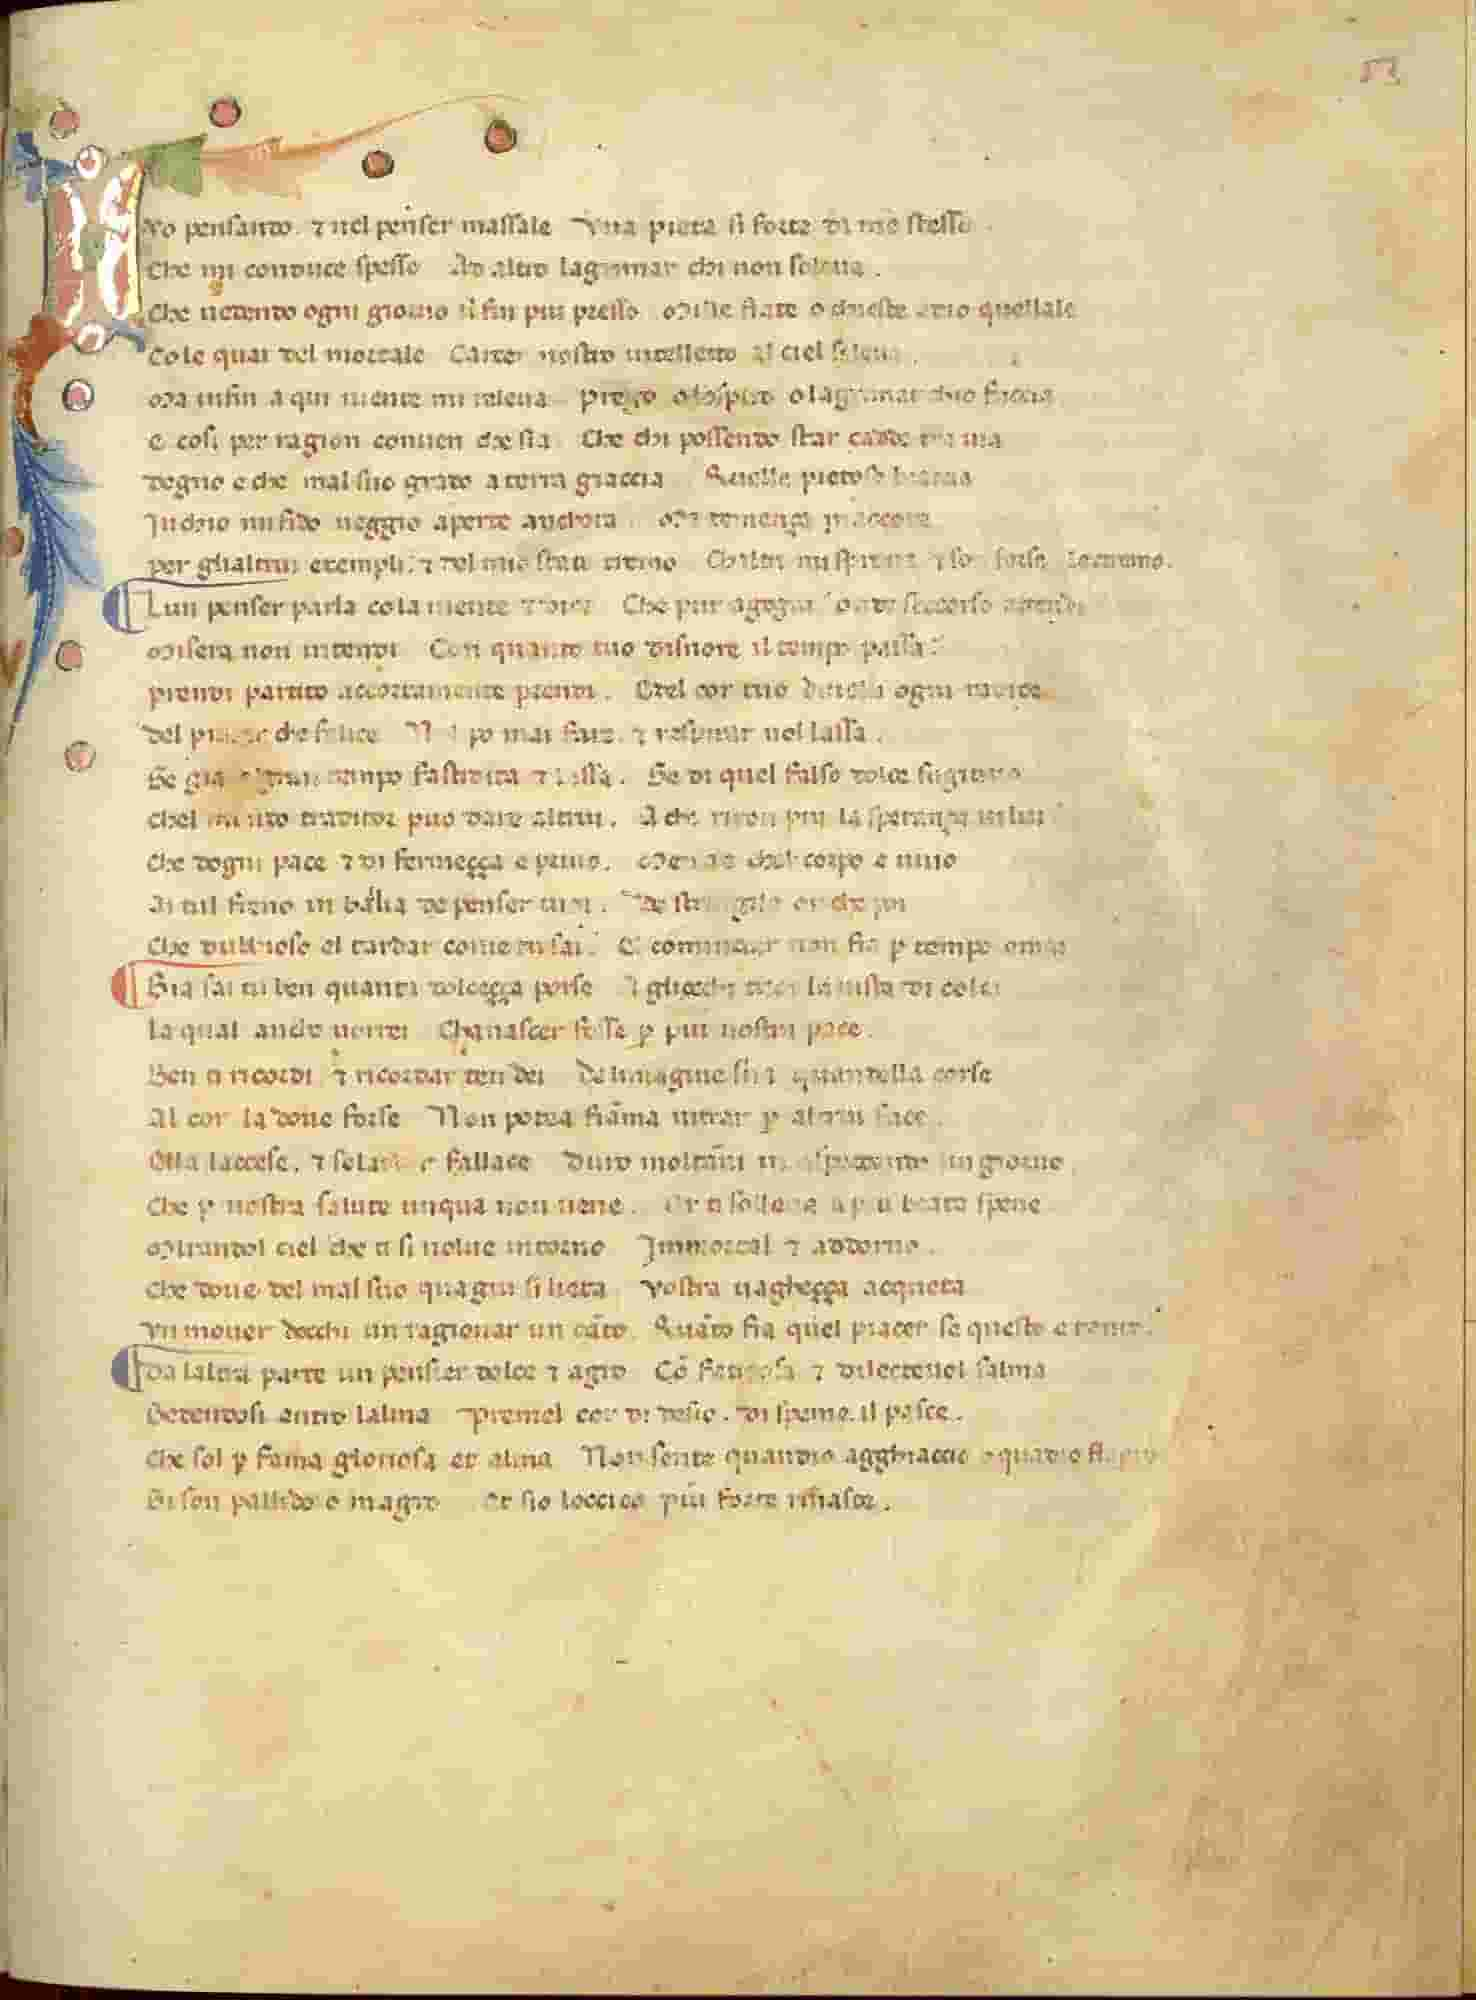 I
Vo pensando. ⁊ nel penser massale Vna pieta si forte di me stesso.
Che mi conduce spesso Ad altro lagrimar chi non soleua.
Che uedendo ogni giorno il fin piu presso Mille fiate o chieste a dio quellale
Cole quai del mortale Carcer nostro intellecto al ciel si leua.
Ma infin a qui niente mi releua Prego o sospiro o lagrimar chio faccia
E cosi per ragion conuen che sia Che chi possendo star cadde tra uia
Degno e che mal suo grado a terra giaccia Quelle pietose braccia
In chio mi fido ueggio aperte anchora Ma temenza maccora
Per glialtrui exempli. ⁊ del mio stato tremo Chaltri mi sprona ⁊ son forse
Lun penser parla co la mente ⁊ dice Che pur agogni onde soccorso attendi
Misera non intendi Con quanto tuo disnore il tempo passa
Prendi partito accortamente prendi. E del cor tuo diuelli ogni radice
Del piacer che felice Nol po mai fare. ⁊ respirar nol lassa.
Se gia tempo fastidita ⁊ lassa. Se di quel falso dolce fugitiuo
Chel mondo traditor puo dare altrui. A che ripon piu la speranza in lui
Che dogni pace ⁊ di fermezza e priuo. Mentre chel corpo e uiuo
Ai tul freno in balia de penser tuoi. De stringilo or che poi
Che dubbioso el tardar come tu sai. El cominciar non fia ꝑ tempo omai
Gia sai tu ben quanta dolcezza porse A gliocchi tuoi la uista di colei
La qual ancho uorrei Cha nascer fosse ꝑ piu nostra pace.
Ben ti ricordi. ⁊ ricordar ten dei De limagine sua quandella corse
Al cor la doue forse Non potea fiāma intrar ꝑ altrui face.
Ella laccese. ⁊ se lardor fallace Duro moltāni in aspectando un giorno
Che ꝑ nostra salute unqua non uene. Or ti solleua a piu beata spene
Mirandol ciel che ti si uolue intorno Immortal ⁊ addorno.
Che doue del mal suo qua giu si lieta Vostra uaghezza acqueta
Vn mouer docchi un ragionar un cāto. Quāto fia quel piacer se questo e tanto.
Da laltra parte un pensier dolce ⁊ agro Cō faticosa. ⁊ dilecteuol salma
Sedendosi entro lalma Premel cor di desio. di speme. il pasce.
Che sol ꝑ fama gloriosa et alma Non sente quandio agghiaccio o quādio flagro
Si son pallido o magro Et sio loccido piu forte rinasce.